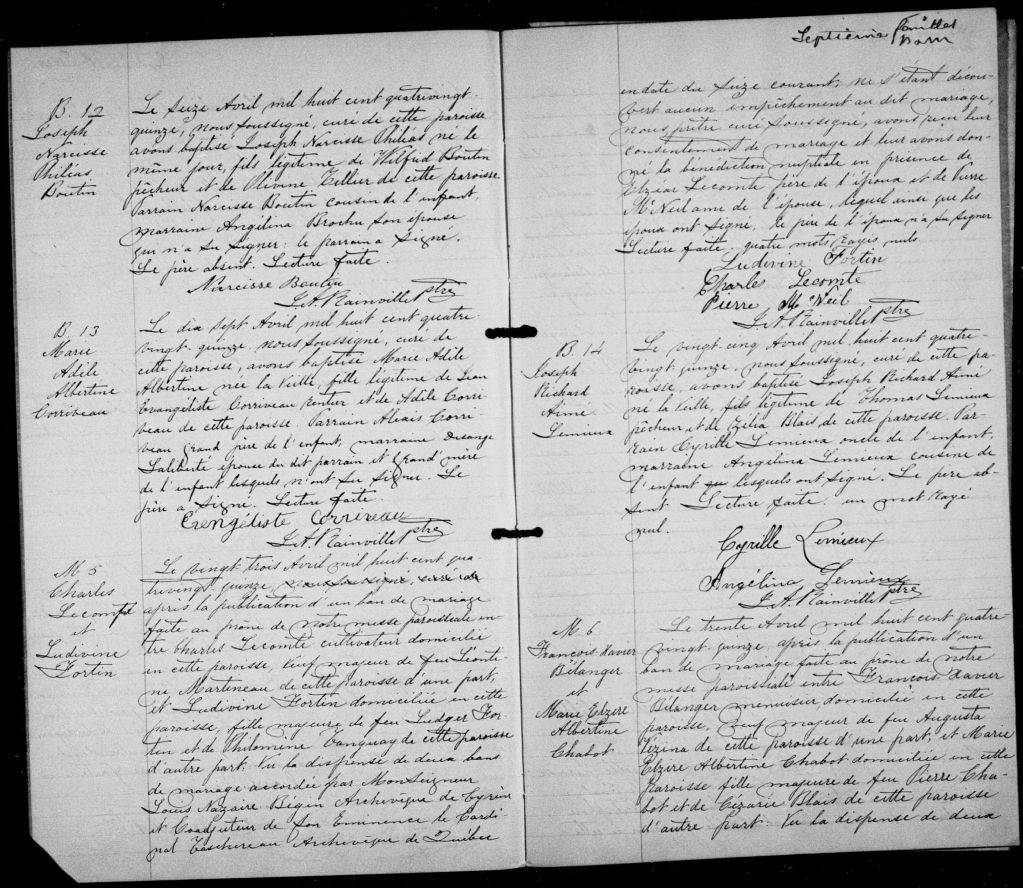 B. 12
Joseph
Narcisse
Philéas
Boutin
Le Seize Avril mil huit cent quatrevingt-
quinze, nous soussigné, curé de cette paroisse
avons baptisé Joseph Narcisse Philéas né le
même jour, fils légitime de Wilfrid Boutin
pêcheur et de Olivine Tellier de cette paroisse
Parrain Narcisse Boutin cousin de l'enfant,
marraine Angélina Brochu son épouse
qui n'a su signer: le parrain a signé.
Le père absent. Lecture faite.
Narcisse Boutin
J. A. Rainville Ptre
B. 13
Marie
Adèle
Albertine
Corriveau
Le dix sept Avril mil huit cent quatre-
vingt-quinze, nous soussigné, curé de
cette paroisse, avons baptisé Marie Adèle
Albertine née la veille, fille légitime de Jean
Evangéliste Corriveau rentier et de Adèle Corri-
veau de cette paroisse. Parrain Alexis Corri
veau Grand père de l'enfant, marraine Desange
Laliberté épouse du dit parrain et Grand'mère
de l'enfant lesquels n'ont su signer. Le
père a signé. Lecture faite.
Evengéliste Corriveau
J. A. Rainville Ptre
M 5
Charles
Lecompte
et
Ludivine
Fortin
Le vingt trois Avril mil huit cent qua-
trevingt-quinze nous soussigné, curé de
après la publication d'un ban de mariage
faite au prône de notre messe paroissiale en-
tre Charles Lecomte cultivateur domicilié
en cette paroisse, veuf majeur de feu Léonti-
ne Martineau de cette paroisse d'une part,
et Ludivine Fortin domiciliée en cette
paroisse, fille majeure de feu Ludger For-
tin et de Philomène Tanguay de cette paroisse
d'autre part; Vu la dispense de deux bans
de mariage accordée par Monseigneur
Louis Nazaire Bégin Archevêque de Cyrène
et Coadjuteur de Son Eminence le Cardi-
nal Taschereau Archevêque de Québec
Septième feuillet
en date du Seize courant; ne s'étant décou-
vert aucun empêchement au dit mariage,
nous prêtre curé soussigné, avons reçu leur
consentement de mariage et leur avons don-
né la bénédiction nuptiale en présence de
Elzéar Lecomte père de l'époux et de Pierre
McNeil ami de l'épouse, lequel ainsi que les
époux ont signé, le père de l'époux n'a su signer
Lecture faite. quatre mots rayés nuls
Ludivine Fortin
Charles Lecomte
Pierre McNeil
J. A. Rainville Ptre
B. 14
Joseph
Richard
Aimé
Lemieux
Le vingt-cinq Avril mil, huit cent quatre-
vingt-quinze, nous soussigné, curé de cette pa-
roisse, avons baptisé Joseph Richard Aimé
né la veille, fils légitime de Thomas Lemieux
pêcheur, et de Zélia Blais de cette paroisse. Par-
rain Cyrille Lemieux oncle de l'enfant.
marraine Angélina Lemieux cousine de
l'enfant qu lesquels ont signé. Le père ab-
sent Lecture faite. un mot rayé
nul.
Cyrille Lemieux
Angélina Lemieux
J. A. Rainville Ptre
M. 6
François Xavier
Bélanger
et
Marie Elzere
Albertine
Chabot
Le trente Avril mil huit cent quatre-
vingt-quinze, après la publication d'un
ban de mariage faite au prône de notre
messe paroissiale entre François Xavier
Bélanger menuisier, domicilié en cette
paroisse, veuf majeur de feu Augusta
Vézina de cette paroisse d'une part; et Marie
Elzere Albertine Chabot domiciliée en cette
paroisse fille majeure de feu Pierre Cha-
bot et de Cézarie Blais de cette paroisse
d'autre part. Vu la dispense de deux